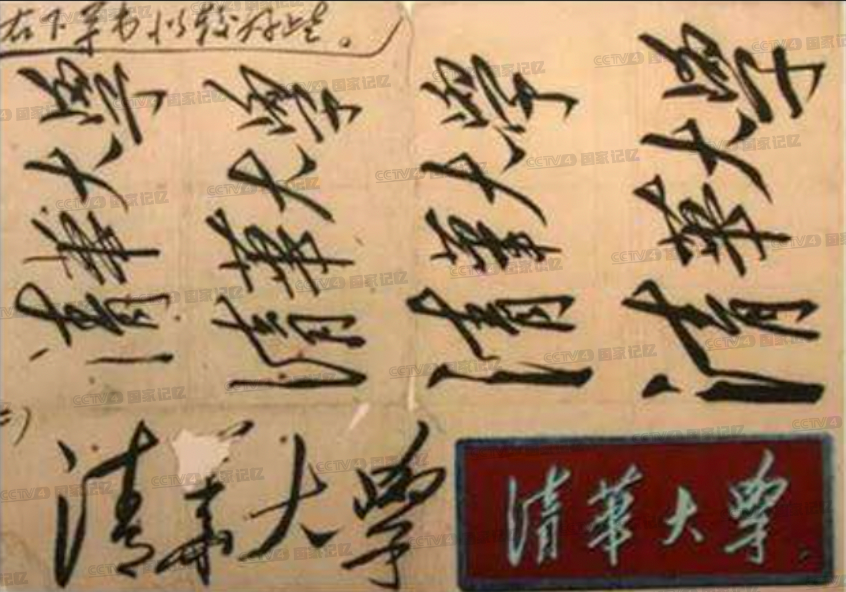 右下草书似较好些。
清華大學
清華大學
清華大學
清華大學
清華大學
清華大學
CCTV4 国家记忆